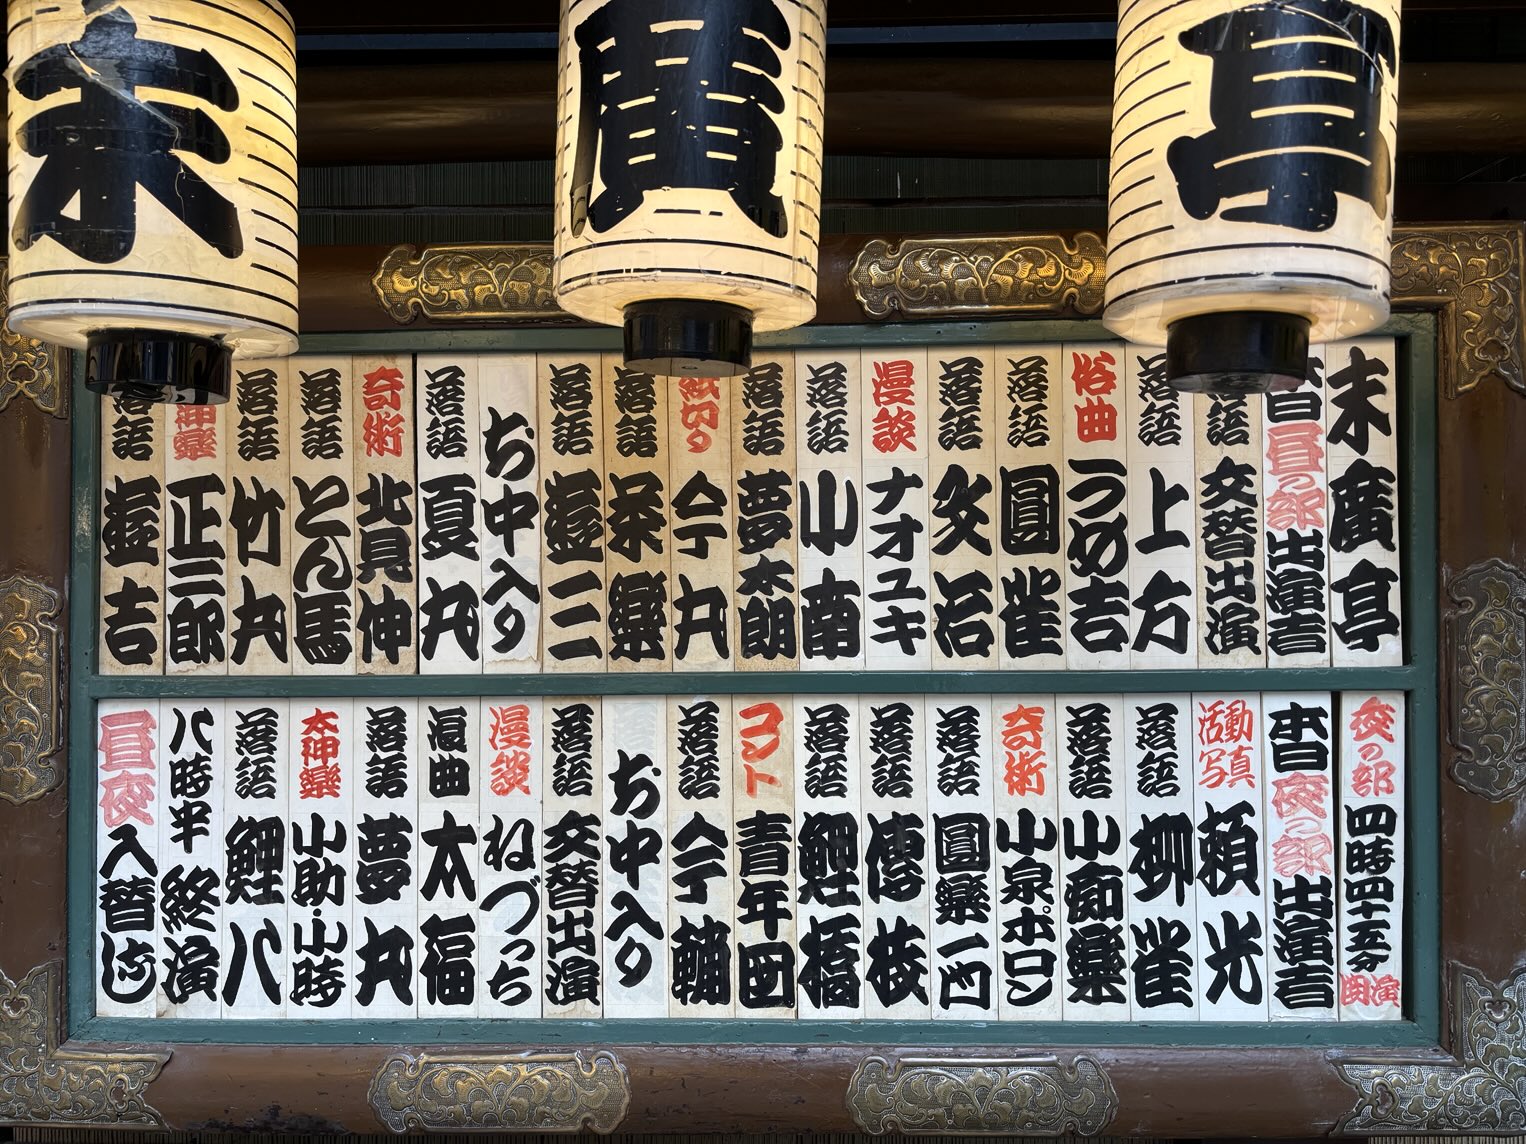 末廣亭
末廣亭
本日昼の部出演者
落語 交替出演
落語 上方
俗曲 うめ吉
落語 圓雀
落語
漫談 ナオユキ
落語 小南
落語 夢太朗
紙切り 今丸
落語 茶樂
落語 遊三
お中入り
落語 夏丸
奇術 北見伸
落語 とん馬
落語 竹丸
神樂 正二郎
落語 遊吉
夜の部 四時四十五分開演
本日夜の部出演者
活動写真 頼光
落語 柳雀
落語 小痴樂
奇術 小泉ポロン
落語 圓樂一門
落語 傳枝
落語 鯉橋
コント 青年団
落語 今輔
お中入り
落語 交替出演
漫談 ねづっち
浪曲 太福
落語 夢丸
太神樂 小助・小時
落語 鯉八
八時半 終演
昼夜入替なし